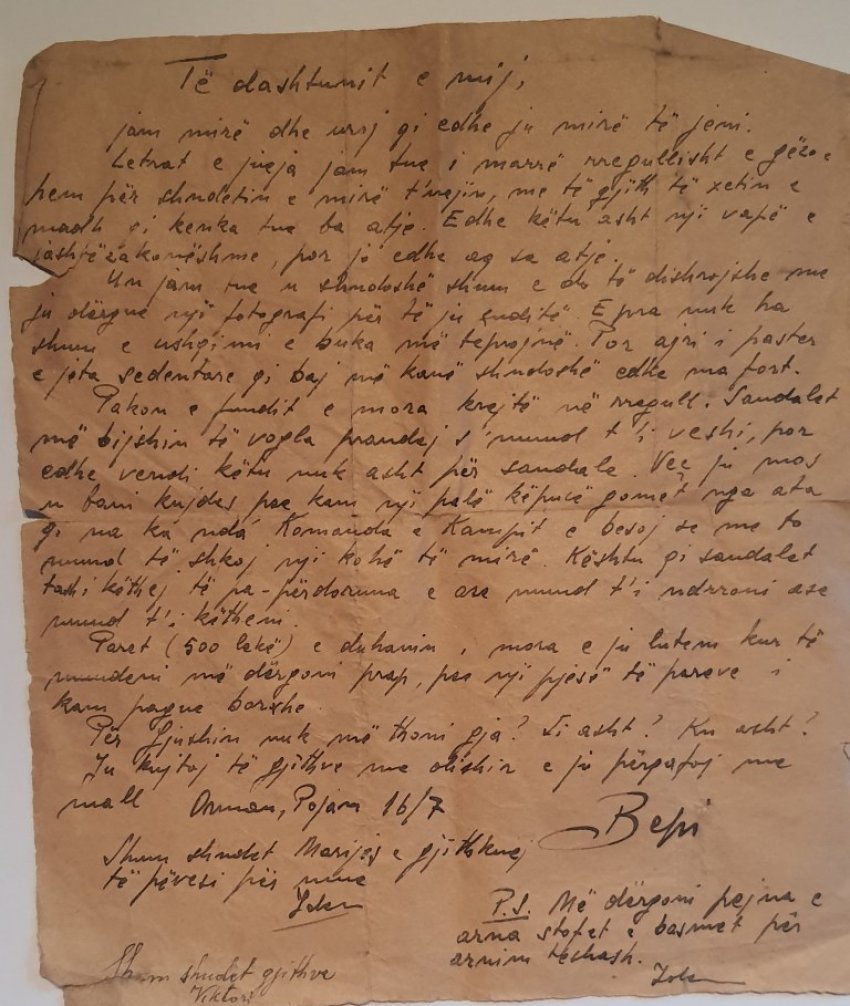 Të dashtunit e mij,
jam mirë dhe uroj qi edhe ju mirë të jeni.
Letrat e jueja jam tue i marrë rregullisht e gëzo-
hem për shndetin e mirë t'uejin, me të gjith të xetin e
madh qi kenka tue ba atje. Edhe këtu asht nji vapë e
jashtëzakonëshme, por jo edhe aq sa atje.
Un jam tue u shndoshë shum e do të dishrojshe me
ju dërgue një fotografi për të ju çuditë. E pra nuk ha
shum e ushqimi e buka më teprojnë. Por ajri i paster
e jeta sedentare qi baj më kanë shndoshë edhe ma fort.
Pakon e fundit e mora krejtë në rregull. Sandalet
më bijshin të vogla prandej s'mund t'i veshi, por
edhe vendi këtu nuk asht për sandale. Veç ju mos
u bani kujdes pse kam nji palë këpucë gomet nga ata
qi na ka nda Komanda e Kampit e besoj se me to
mund të shkoj nji kohë të mirë. Kështu qi sandalet
tash i këthej të pa-përdoruna e ase mund t'i ndrroni ase
mund t'i ktheni.
Paret (500 lekë) e duhanin, mora e ju lutem kur të
mundeni më dërgoni prap, pse nji pjesë të pareve i
kam pague borxhe.
Për Gjushin nuk më thoni gja? Si asht? Ku asht?
Ju kujtoj të gjithve me dishir e ju përqafoj me
mall Orman, Pojan 16/7
Bepi
Shum shndet Marijes e gjithkuej
të pëvesi për mue
P.S. Më dërgoni pejna e
arna stofet e basmet për
arnim teshash.
Shum shndet gjithve
Viktori